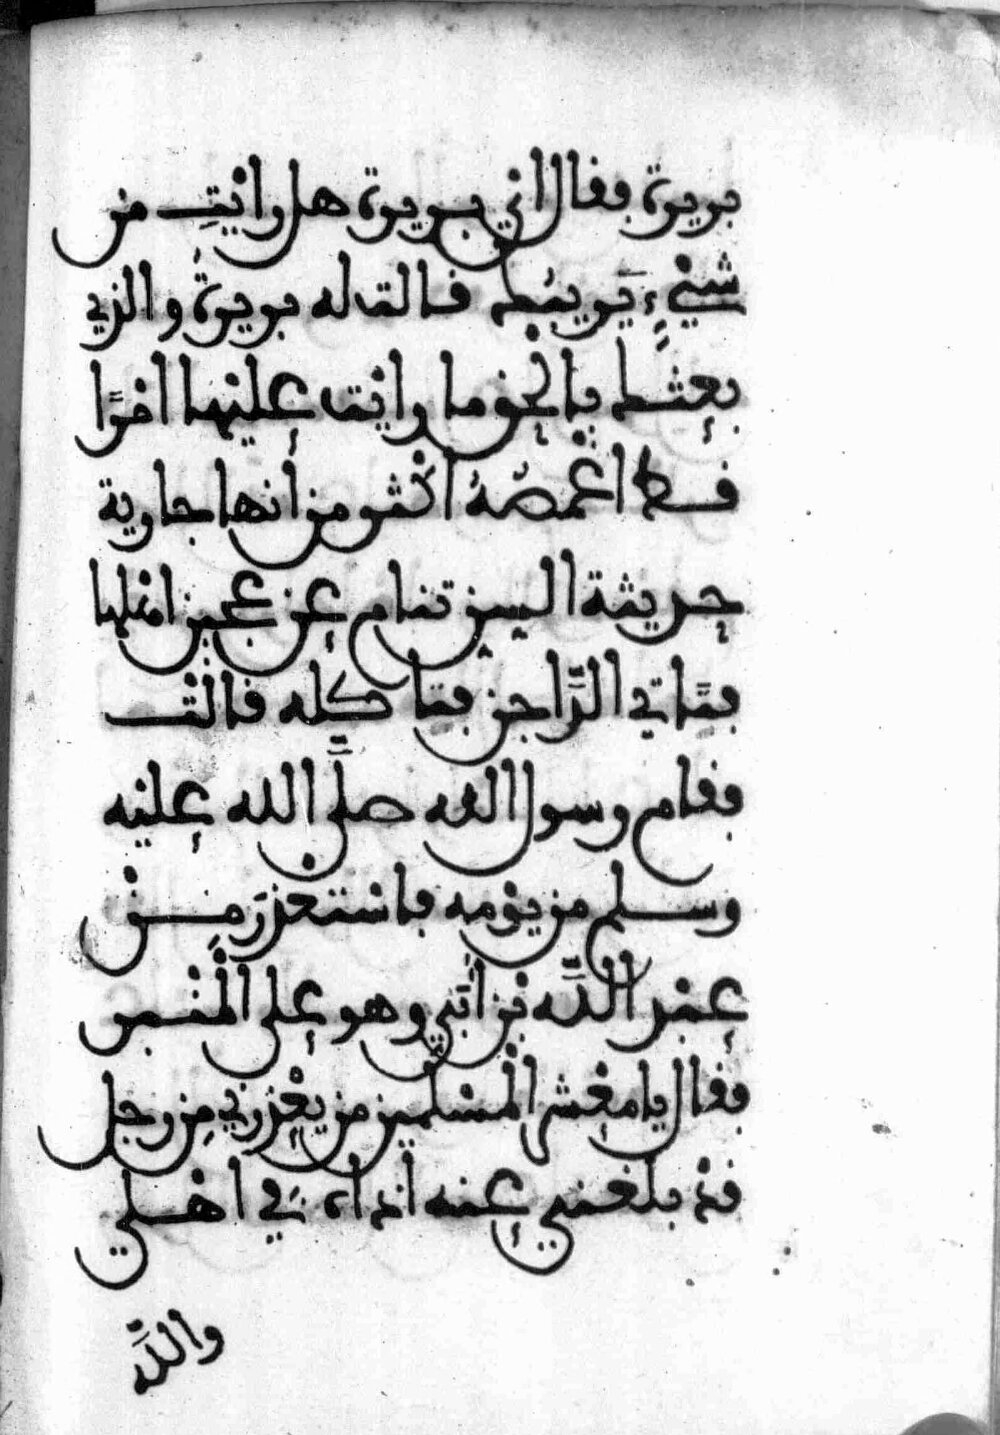 بريرة فقال اي بريرة هل رايتِ من
شيْءٍ يَريبُك قالت له بريرة والذي
بعثك بالحق ما رايت عليها امْرًا
قط اغْمصُهُ اكْثر من أنها جارية
حديثة السن تنام عن عجين اهلها
فتَاتي الدَّاجن فتاكله قالتْ
فقام رسول الله صلَّى الله عليْه
وسلم من يوْمه فاسْتعْذرَ مِنْ
عبْد اللَّه بْن أُبَيٍّ وهو على الْمنْبر
فقال يا معْشر الْمسْلمين من يعْذرني مِن رجل
قدْ بلغني عنه اذاه في اهْلي
واللَّه